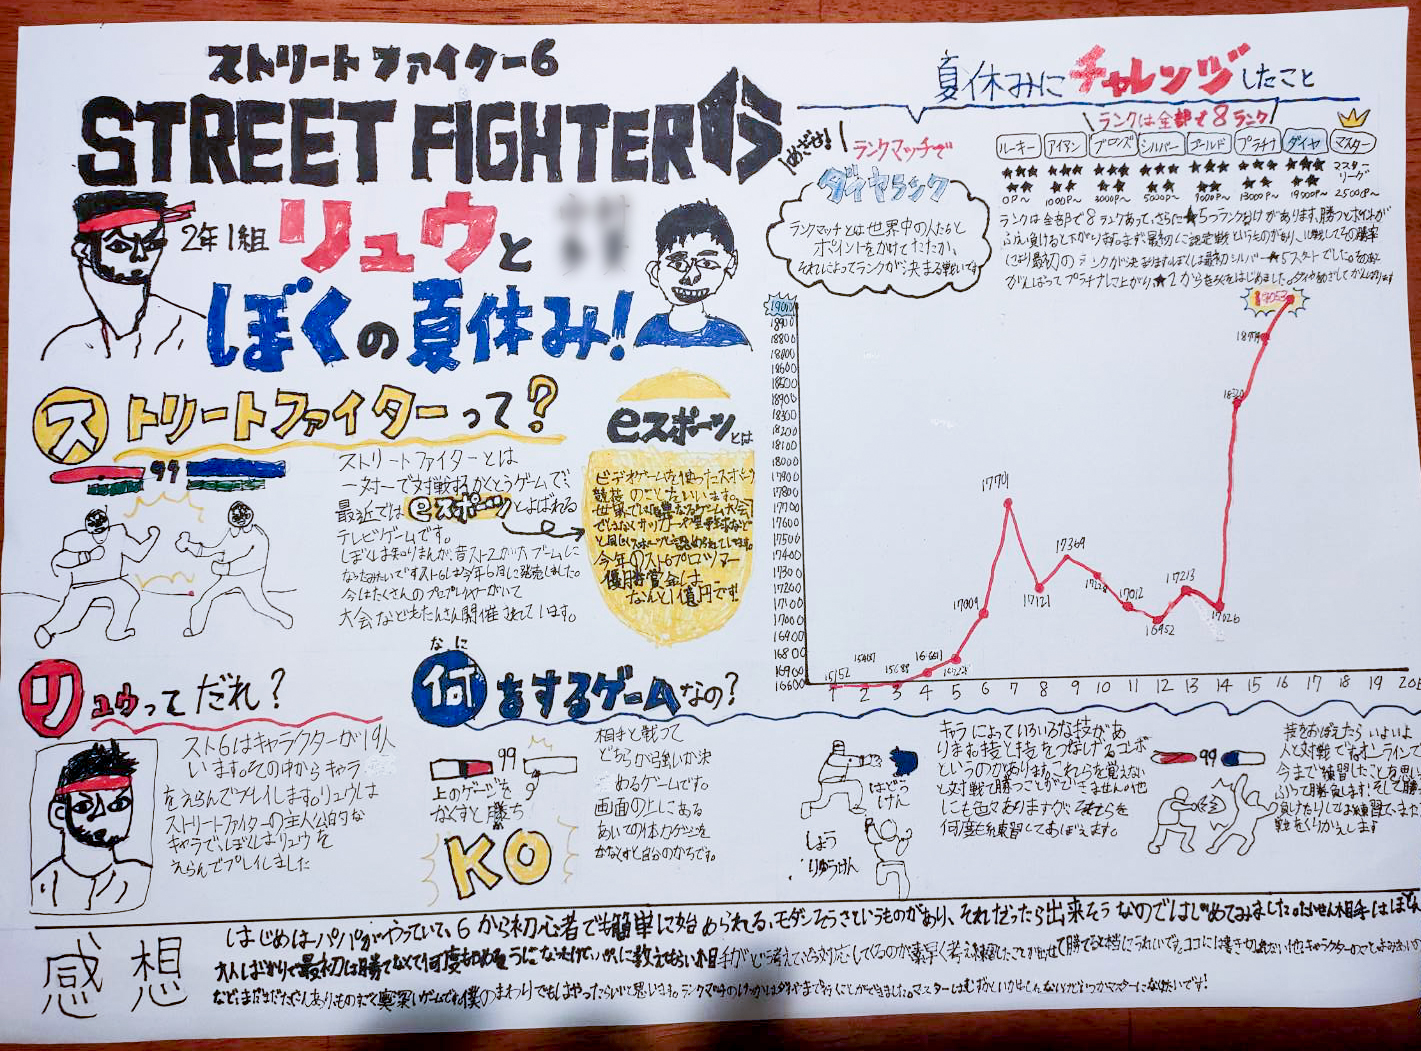 ストリートファイター6
STREET FIGHTER 6
2年1組
リュウと
ぼくの夏休み!
ストリートファイターって?
99
ストリートファイターとは
一対一で対戦するかくとうゲームで、
最近ではeスポーツとよばれる
テレビゲームです。
ぼくは知りませんが、昔スト2が大ブームに
なったみたいです。スト6は今年6月に発売しました。
今はたくさんのプロプレイヤーがいて
大会などもたくさん開催されています。
eスポーツとは
ビデオゲームを使ったスポーツ
競技のことをいいます。
世界では単なるゲーム大会
ではなくサッカーや野球など
と同じスポーツと認められています。
今年のスト6プロツアー
優勝賞金は
なんと1億円です!
リュウってだれ?
スト6はキャラクターが19人
います。その中からキャラ
をえらんでプレイします。リュウは
ストリートファイターの主人公的な
キャラで、ぼくはリュウを
えらんでプレイしました
なに
何をするゲームなの?
99
上のゲージを
なくすと勝ち
KO
相手と戦って
どちらが強いか決
めるゲームです。
画面の上にある
あいての体力ゲージを
なくすと自分のかちです。
はどうけん
しょうりゅうけん
キャラによっていろいろな技があ
ります。技と技をつなげるコンボ
というのがあります。これらを覚えない
と対戦で勝つことができません。他
にも色々ありますが、それらを
何度も練習しておぼえます。
99
技をおぼえたらいよいよ
人と対戦です。オンラインで
今まで練習したことを思い
勝負します!そして勝
負けたりしては練習して、また
戦をくりかえします
夏休みにチャレンジしたこと
めざせ!
ランクマッチで
ダイヤランク
ランクマッチとは世界中の人たちと
ポイントをかけてたたかい、
それによってランクが決まる戦いです
ランクは全部で8ランク
ルーキー アイアン ブロンズ シルバー ゴールド プラチナ ダイヤ マスター
★★★ ★★★ ★★★ ★★★ ★★★ ★★★ ★★★ マスター
★★ ★★ ★★ ★★ ★★ ★★ ★★ リーグ
0P〜 1000P〜 3000P〜 5000P〜 9000P〜 13000P〜 19000P〜 25000P〜
ランクは全部で8ランクあって、さらに★5つランク分けがあります。勝つとポイントが
ふえ、負けると下がります。まず、最初に認定戦というものがあり、10戦してその勝率
により最初のランクが決まります。ぼくは最初シルバー★5スタートでした。
がんばってプラチナに上がり、★2から
19000
18900
18800
17900
17800
17700
17600
17500
17400
17300
17200
17100
17000
16900
16800
16600
15152
17009
17701
17121
17369
17012
16952
17213
17026
19053
1 2 3 4 5 6 7 8 9 10 11 12 13 14 15 16 17 18 19 20
感想
はじめはパパがやっていて、6から初心者でも簡単に始められる、モダンそうさというものがあり、それだったら出来そうなのではじめてみました。たいせん相手はほとん
大人ばかりで最初は勝てなくて何度もやめそうになったけど、パパに教えてもらい、相手がどう考えてどう対応してくるのか素早く考え
僕のまわりでもはやったらいいと思います。
マスターになりたいです!